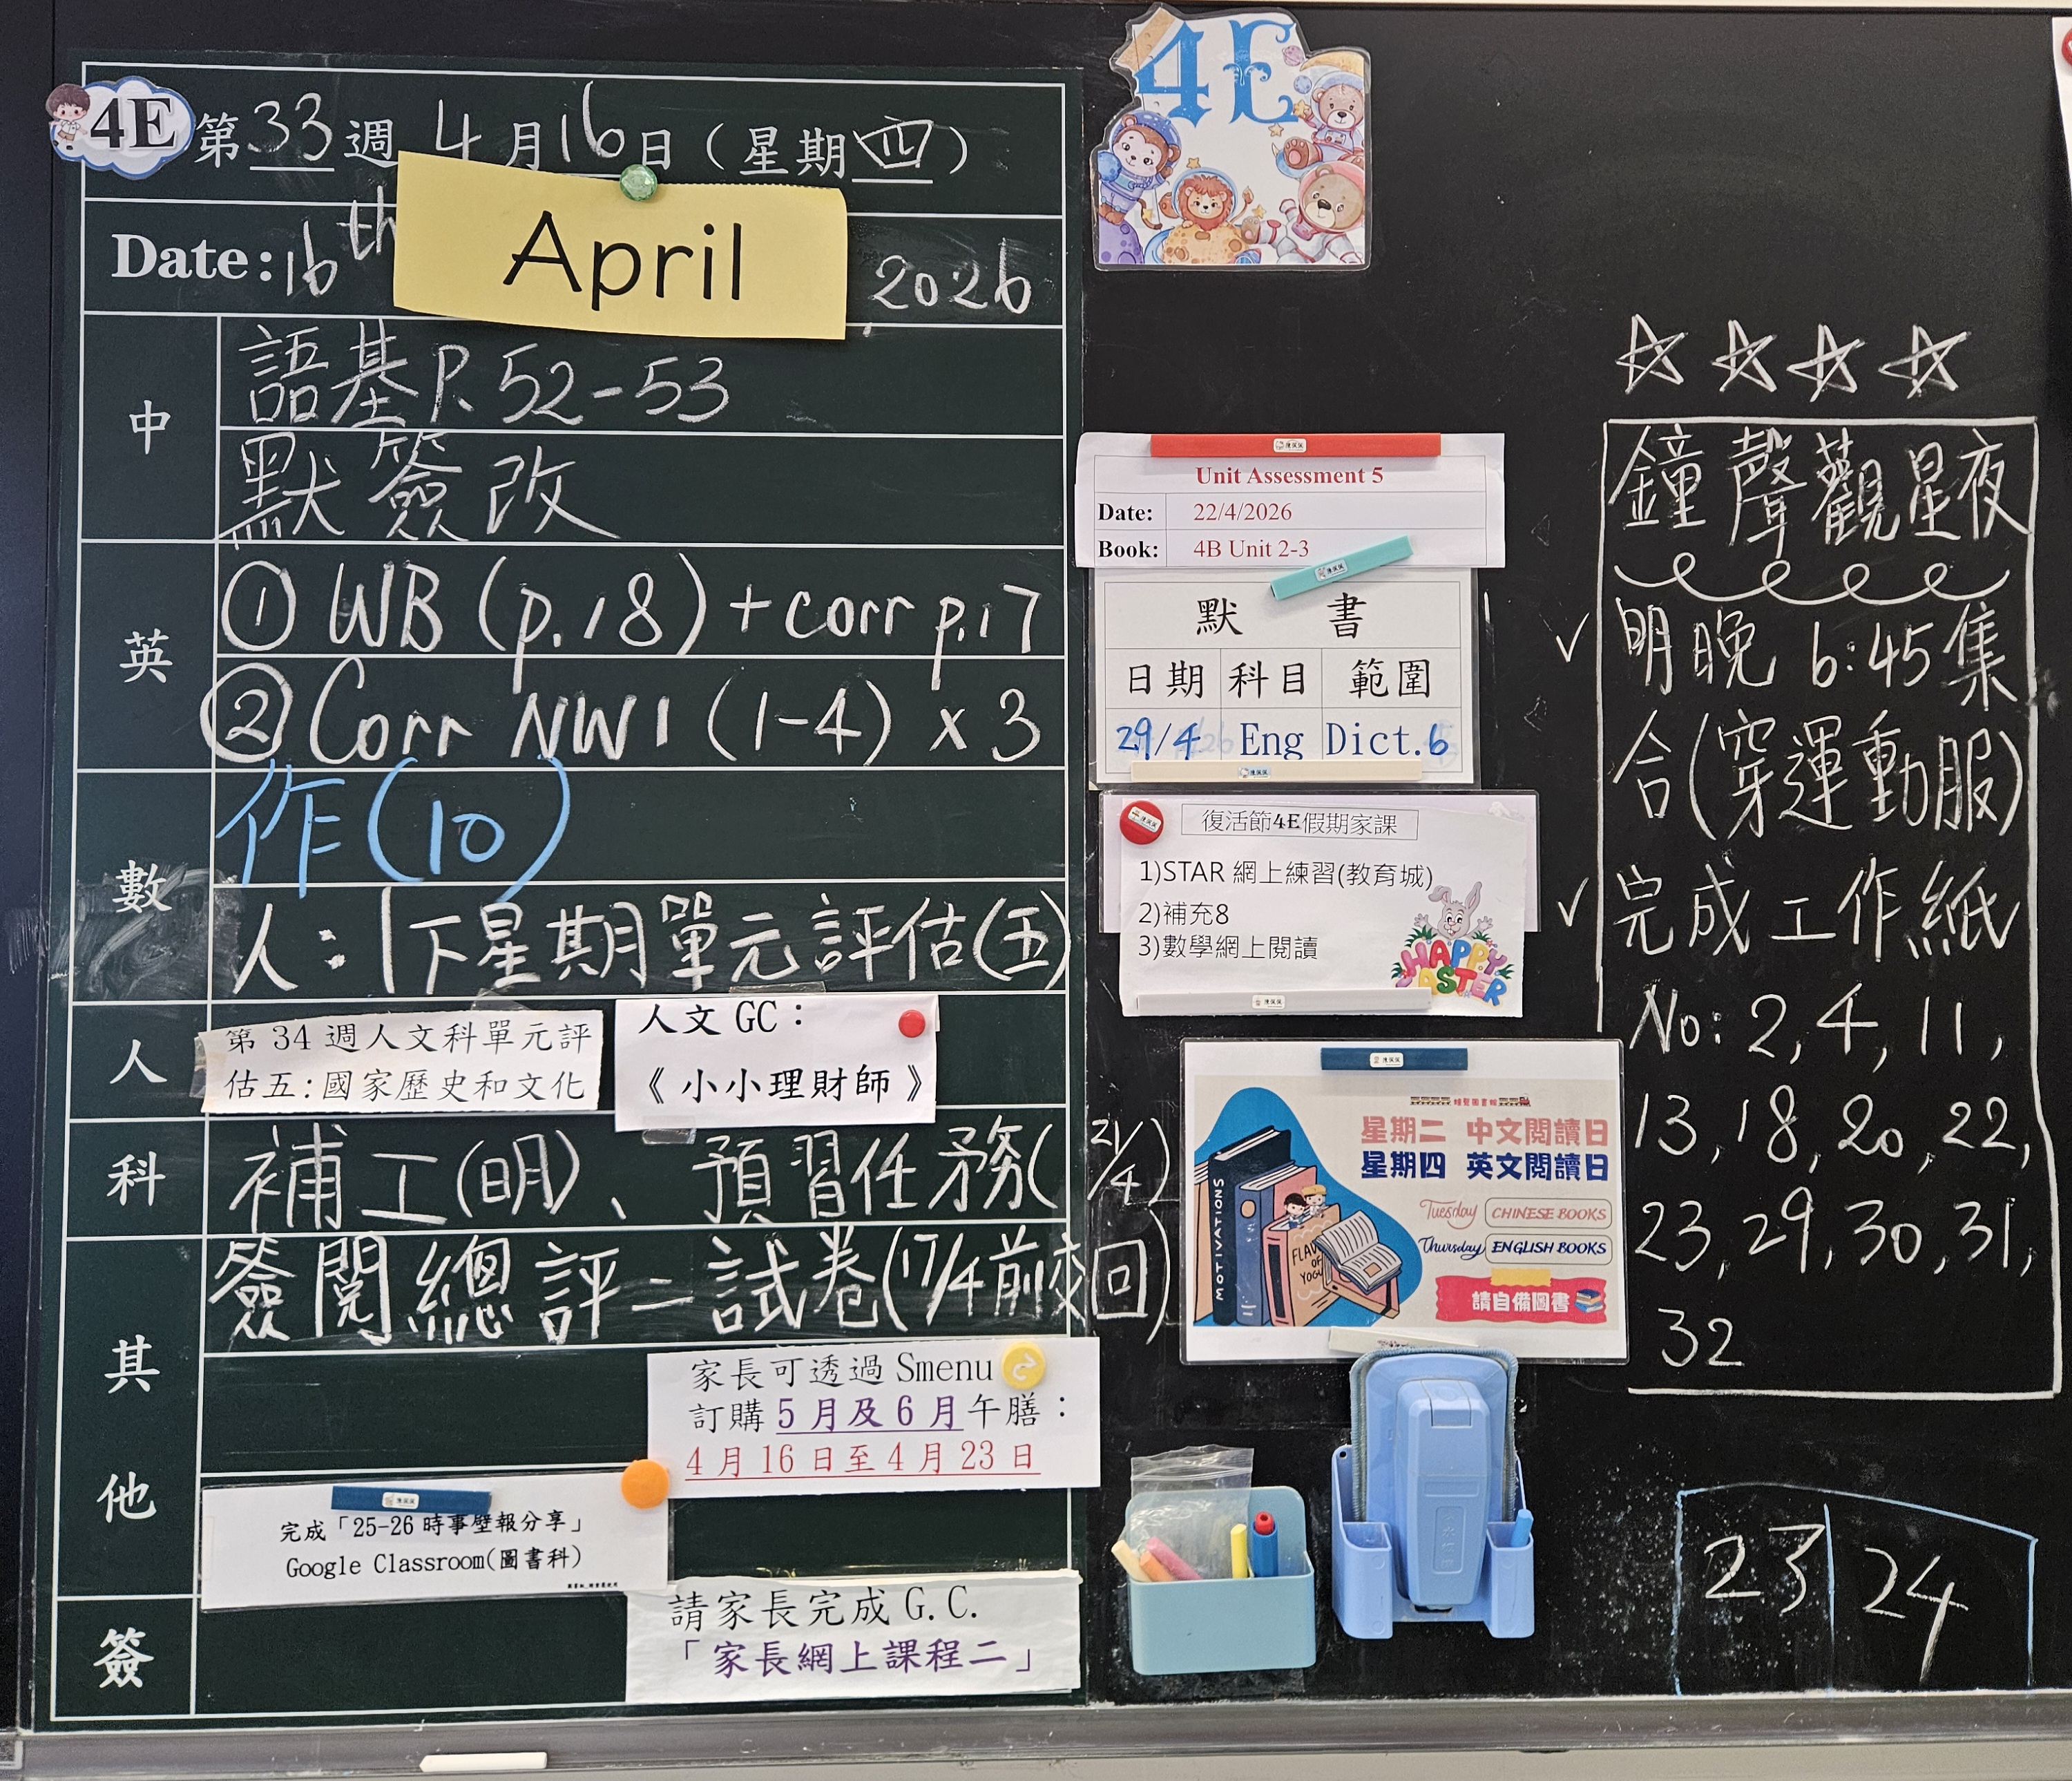 4E 第33週 4月16日(星期四)
Date: 16th April, 2026
中
語基P.52-53
默簽改
英
① WB (p.18) + corr p.17
② Corr NW1 (1-4) x 3
數
作(10)
人: 下星期單元評估(五)
人
第 34 週人文科單元評
估五:國家歷史和文化
人文 GC:
《 小小理財師 》
科
補工(明)、預習任務(21/4)
其他
簽閱總評二試卷(17/4前交回)
家長可透過 Smenu
訂購 5 月及 6 月午膳:
4 月 16 日至 4 月 23 日
完成「25-26 時事壁報分享」
Google Classroom(圖書科)
簽
請家長完成 G.C.
「家長網上課程二」
4E
Unit Assessment 5
Date: 22/4/2026
Book: 4B Unit 2-3
默 書
日期 科目 範圍
29/4 Eng Dict.6
復活節4E假期家課
1)STAR 網上練習(教育城)
2)補充8
3)數學網上閱讀
HAPPY
EASTER
星期二 中文閱讀日
星期四 英文閱讀日
Tuesday CHINESE BOOKS
Thursday ENGLISH BOOKS
請自備圖書
MOTIVATIONS
鐘聲觀星夜
✓ 明晚 6:45 集
合(穿運動服)
✓ 完成工作紙
No: 2, 4, 11,
13, 18, 20, 22,
23, 29, 30, 31,
32
23 24